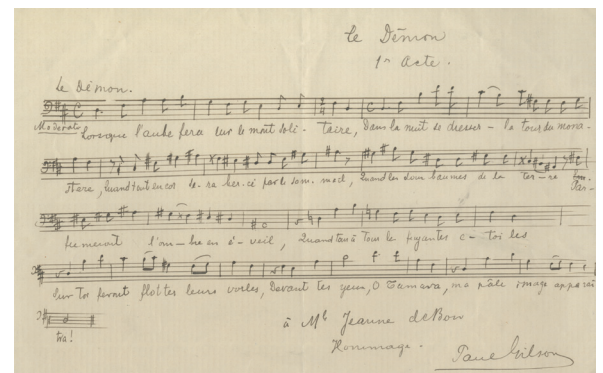 Le Démon
1r Acte.
Le Démon.
Moderato Lorsque l'aube fera sur le mont soli- taire, Dans la nuit se dresser - la tour du mona-
stère, Quand tout encor se-ra ber-cé par le som-meil, Quand les doux baumes de la ter-re Par-
fumeront l'om-bre en é-veil, Quand tout à tous les e-toiles
Sur toi feront flotter leurs voiles, Devant tes yeux, O Tamara, ma pâle image apparaî
tra!
à Mlle Jeanne de Bow
Hommage.
Paul Gilson